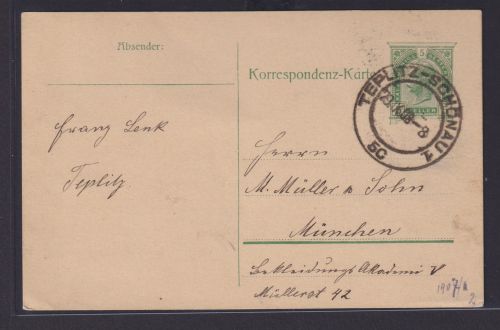 Absender:
Franz Lenk
Teplitz
Korrespondenz-Karte
5
TEPLITZ-SCHÖNAU 1
8
5c
Herrn
M. Müller & Sohn
München
Bekleidungs Akademie V
Müllerst 42